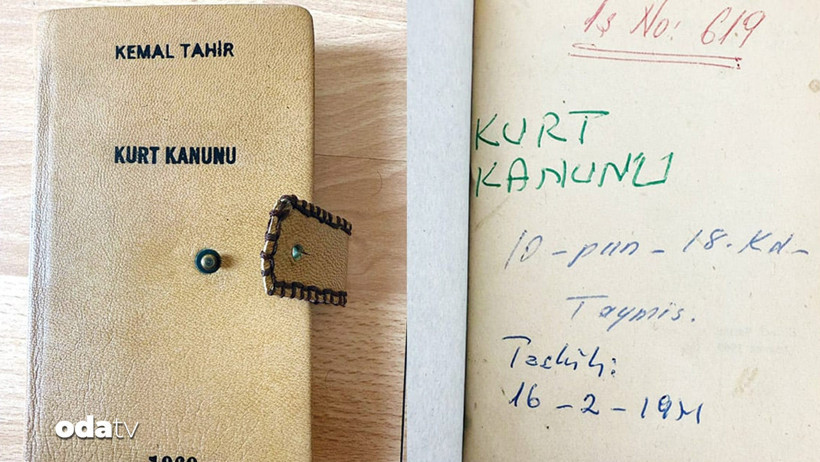 KEMAL TAHİR
KURT KANUNU
odatv
İş No: 619
KURT
KANUNU
10 - pun - 18. Kd -
Taymis.
Tashih:
16 - 2 - 1971